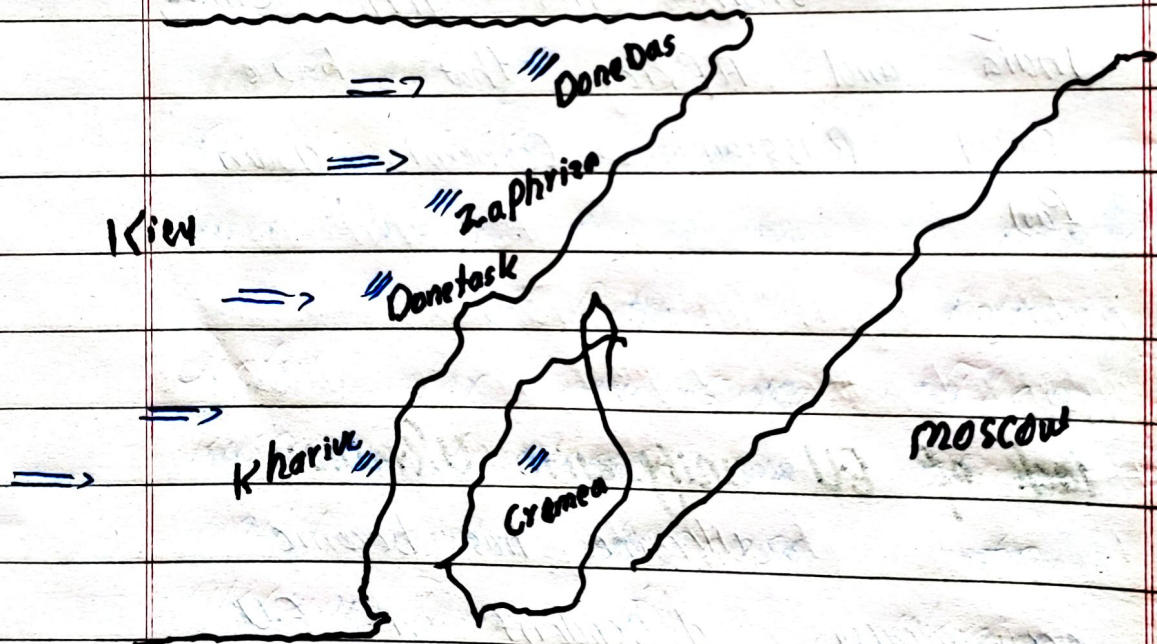 DoneDas
Zaphrizo
Kiev
Donetask
Kharivc
Cremea
moscow